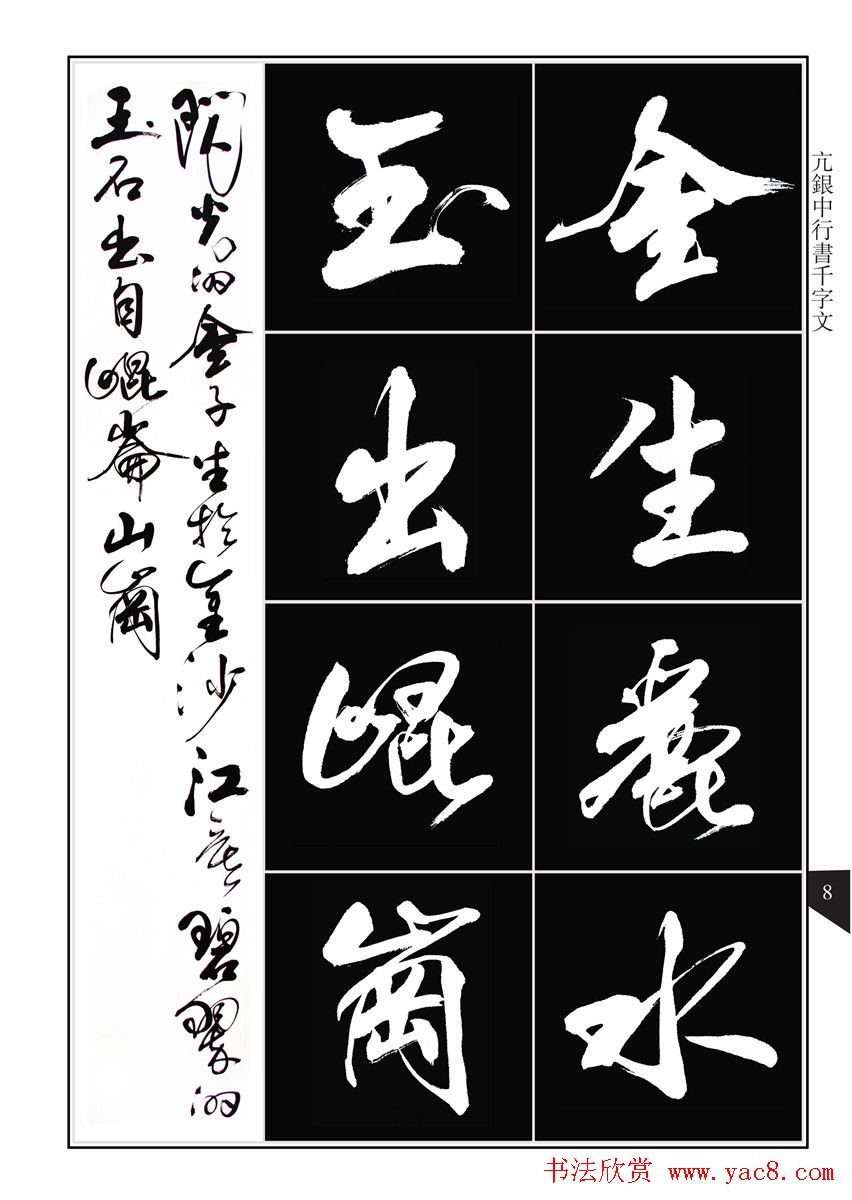 亢銀中行書千字文
金生麗水
玉出崐崗
閃光的金子生於金沙江底碧翠的
玉石出自崐崙山崗
8
书法欣赏 www.yac8.com